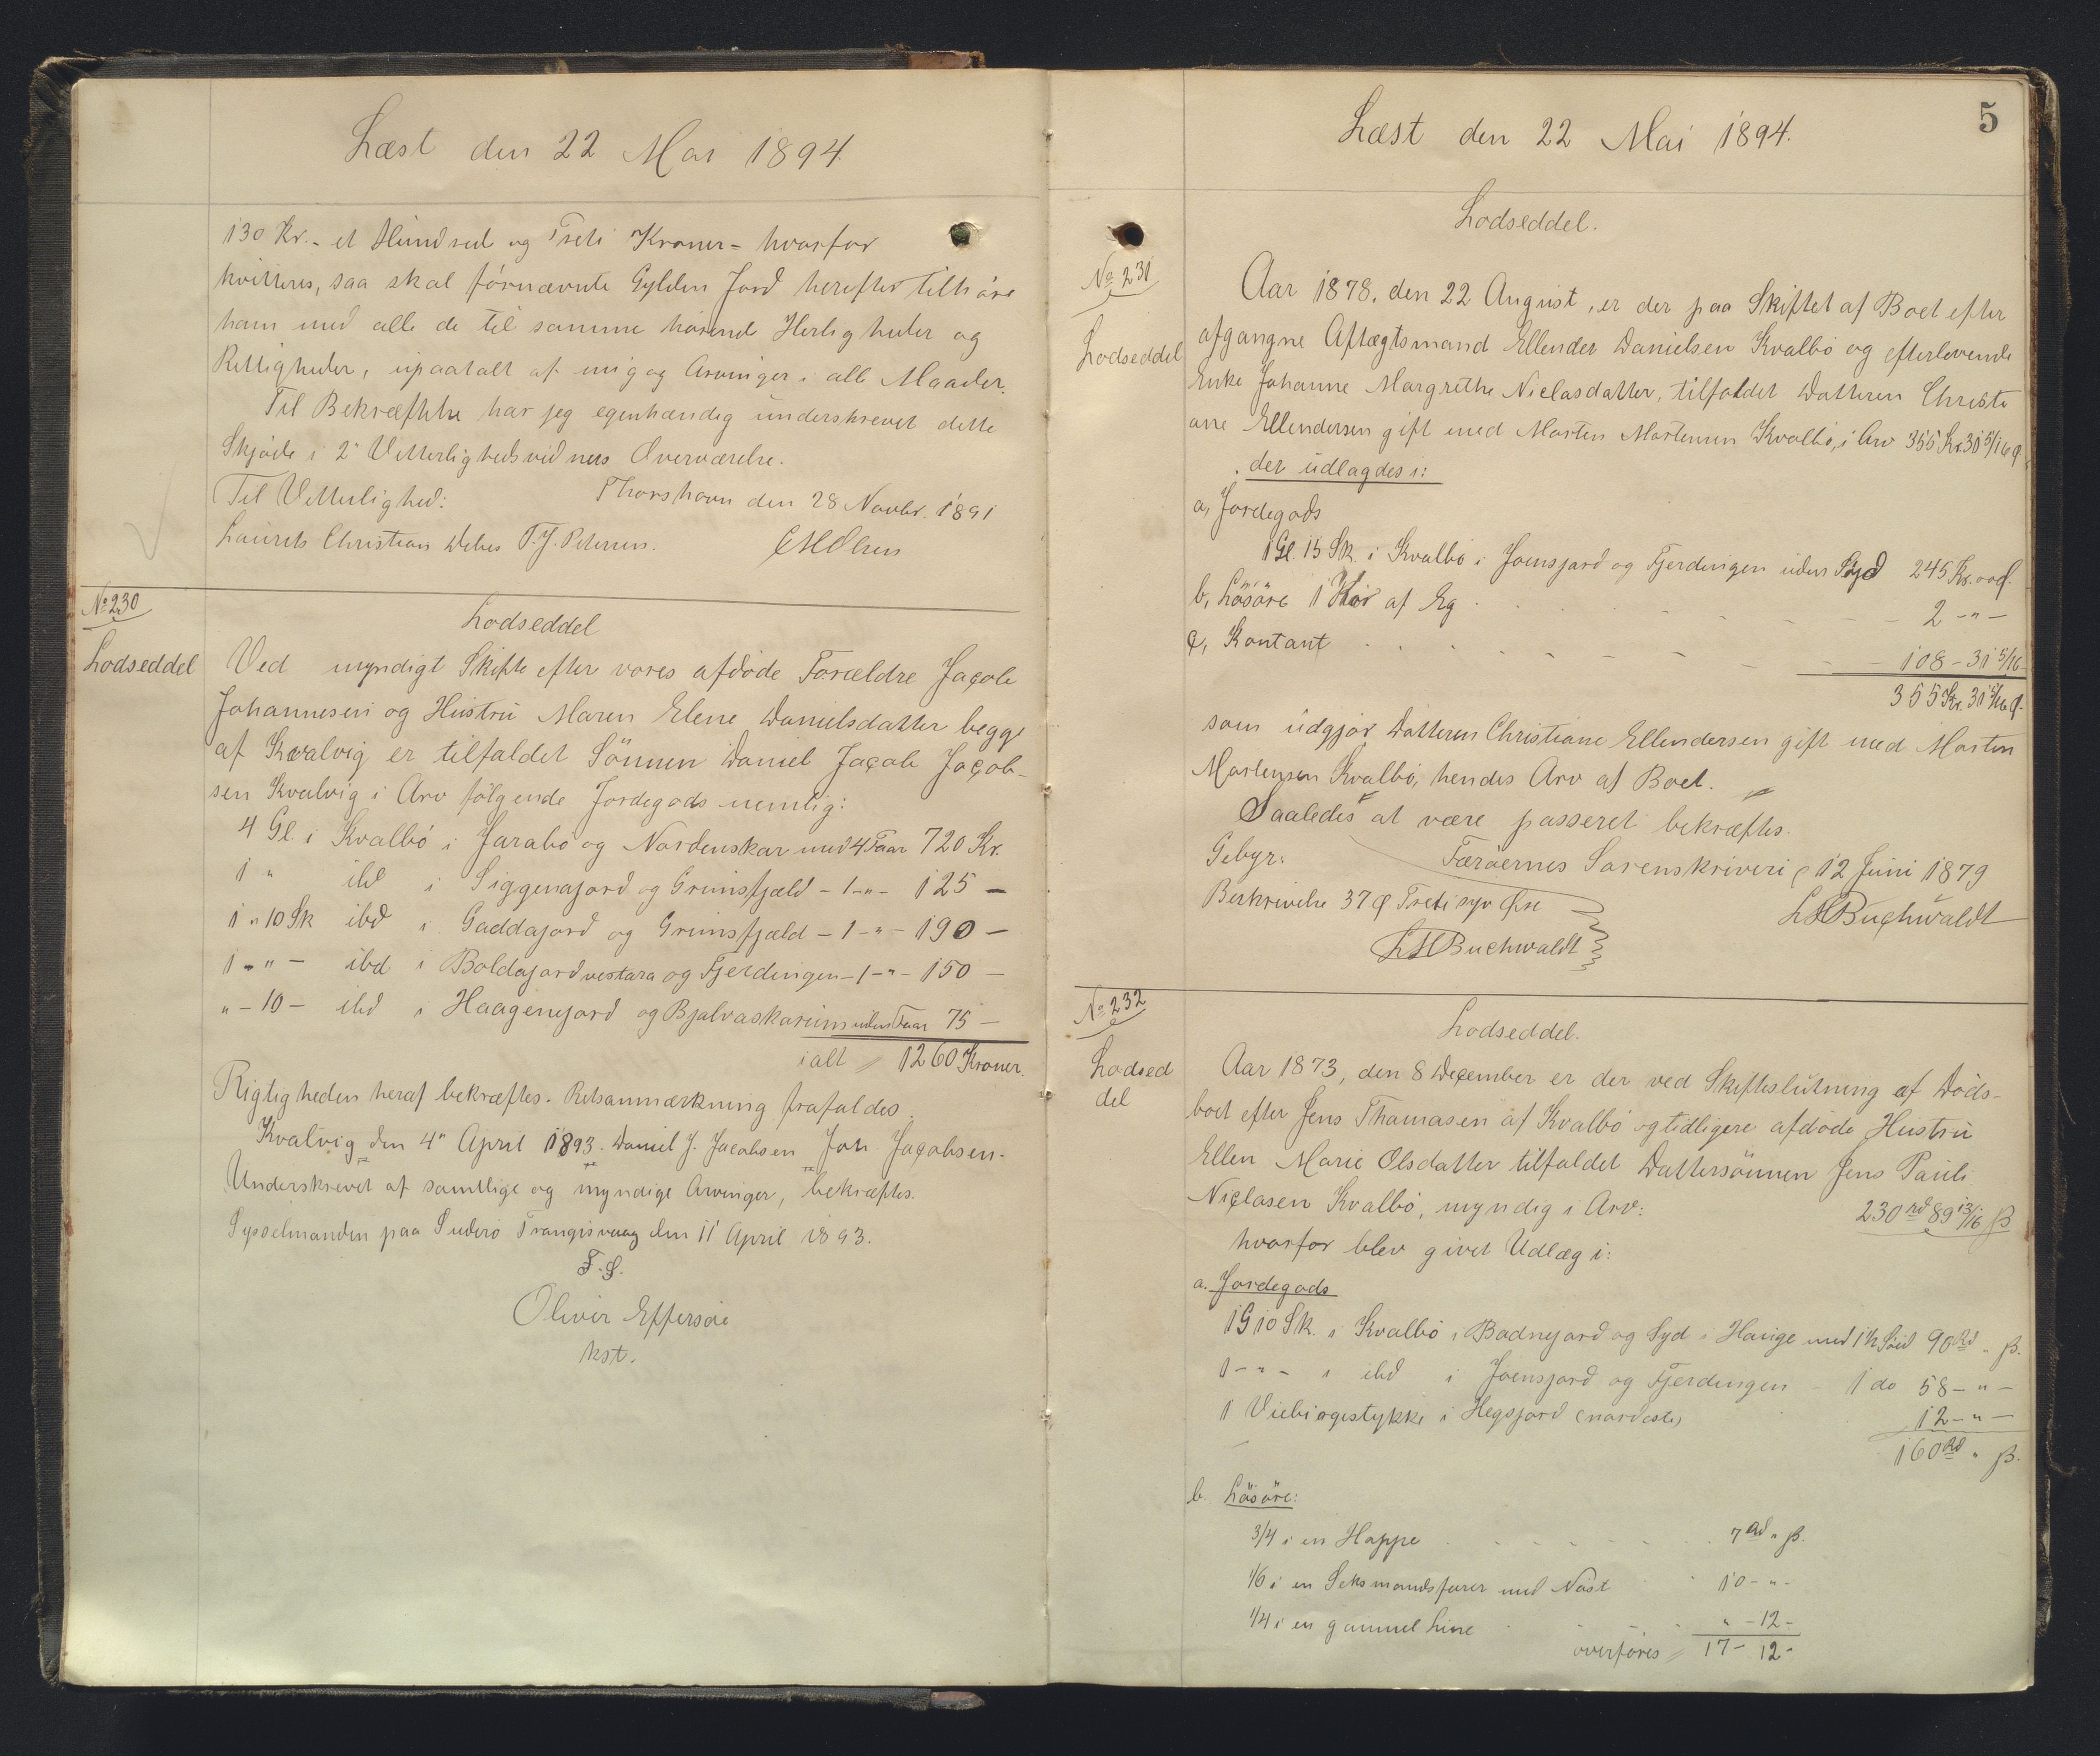 Læst den 22 Mai 1894.
130 Kr. - et Hundred og Treti Kroner - hvorfor
kvitteres, saa skal förnævnte Gylden Jord herefter tilhöre
ham med alle de til samme hörende Herligheder og
Rettigheder, upaatalt af mig og Arvinger i alle Maader.
Til Bekræftelse har jeg egenhændig underskrevet dette
Skjöde i 2 Vitterlighedsvidners Overværelse.
Thorshavn den 28 Novbr. 1891
Til Vitterlighed:
Laurits Christian Debes T. J. Petersen.
No 230
Lodseddel
Lodseddel
Ved myndigt Skifte efter vores afdöde Forældre Jacob
Johannesen og Hustru Maren Elene Danielsdatter begge
af Kvalvig er tilfaldet Sönnen Daniel Jacob Jacob-
sen Kvalvig i Arv fölgende Jordegods nemlig:
4 Gl. i Kvalbö i Jarabö og Nordenskar med 4 Faar 720 Kr.
1 " ibd i Siggenajord og Grimsfjæld - 1 - " - 125 -
1 " 10 Sk ibd i Gaddajord og Grimsfjæld - 1 - " - 190 -
1 - " - ibd i Boldajord vestara og Fjerdingen - 1 - " - 150 -
" - 10 - ibd i Haagenejord og Bjalvaskarum uden Faar 75 -
ialt 1260 Kroner.
Rigtigheden heraf bekræftes. Retsanmærkning frafaldes.
Kvalvig den 4" April 1893. Daniel J. Jacobsen Joh. Jacobsen.
Underskrevet af samtlige og myndige Arvinger, bekræftes.
Sysselmanden paa Suderö Trangisvaag den 11 April 1893.
Oliver Effersöe
kst.
5
Læst den 22 Mai 1894.
Lodseddel.
No 231
Lodseddel
Aar 1878, den 22 August, er der paa Skiftet af Boet efter
afgangne Aftægtsmand Ellender Danielsen Kvalbö og efterlevende
Enke Johanne Margrethe Niclasdatter, tilfaldet Datteren Christi
ane Ellendersen gift med Morten Mortensen Kvalbö, i Arv 355 Kr. 31 5/16 Ø
der udlagdes i:
a, Jordegods
1 Gl. 15 Sk. i Kvalbö i Joensjord og Fjerdingen uden Söjd 245 Kr. 00 Ø.
b, Lösöre 1 Kar af Eg 2 - " -
c, Kontant 108 - 31 5/16 -
355 Kr. 31 5/16 Ø.
som udgjör Datteren Christiane Ellendersen gift med Morten
Mortensen Kvalbö, hendes Arv af Boet.
Saaledes at være passeret bekræftes.
Gebyr: Færöernes Sorenskriveri d 12 Juni 1879
Beskrivelse 37 Ø Treti syv Öre LHBuchwaldt
LHBuchwaldt
No 232
Lodsed
del
Lodseddel.
Aar 1873, den 8 December er der ved Skifteslutning af Döds-
boet efter Jens Thomasen af Kvalbö og tidligere afdöde Hustru
Ellen Marie Olsdatter tilfaldet Dattersönnen Jens Pauli
Niclasen Kvalbö, myndig i Arv: 230 rd 89 13/16 ß
hvorfor blev givet Udlæg i:
a. Jordegods
1 G 10 Sk. i Kvalbö i Bodnejord og Syd i Hauge med 1½ Söid 90 Rd " ß.
1 - " - i ibd i Joensjord og Fjerdingen - 1 do 58 - " -
1 Viebiogestykke i Hegsjord (nordeste) 12 - " -
160 Rd " ß.
b. Lösöre:
3/4 i en Hoppe 7 Rd " ß.
1/6 i en Seksmandsfarer med Nöst 10 - " -
1/4 i en gammel Line " - 12 -
overföres 17 - 12 -